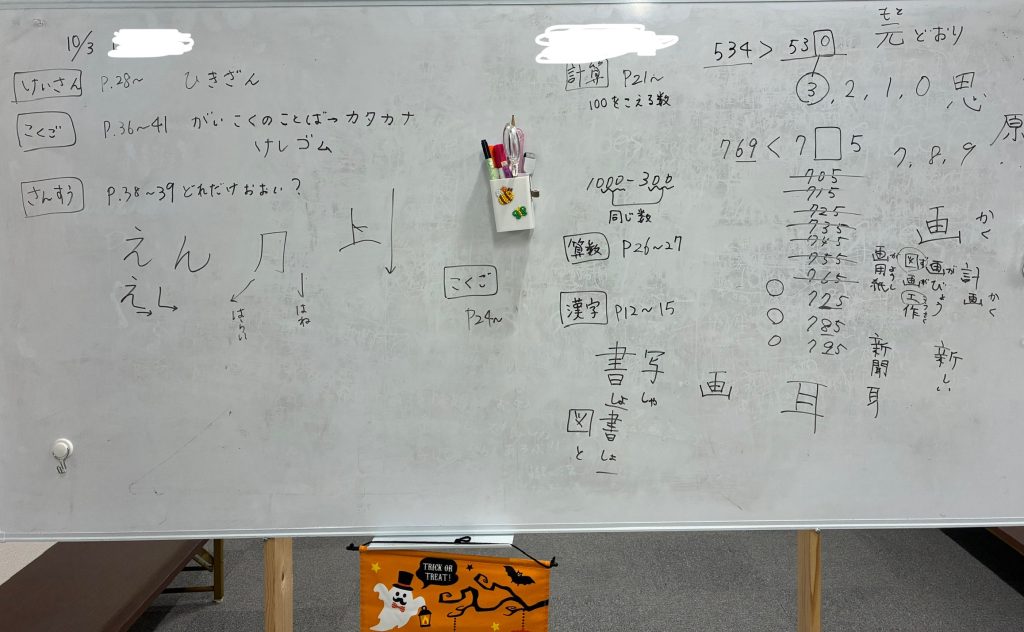 10/3
けいさん P.28~ ひきざん
こくご P.36~41 がいこくのことばっカタカナ
けしゴム
さんすう P.38~39 どれだけおおい?
えん 月 上
え し
はらい はね
こくご
P24~
計算 P21~
100をこえる数
1000-300
同じ数
算数 P26~27
漢字 P12~15
書写
しょ しゃ
図書
と しょ
534 > 530
3, 2, 1, 0
元どおり
もと
思
原
769 < 7□5 7, 8, 9
705
715
725
735
745
755
765
775
785
795
画 かく
計画 かく
画びょう
が
図画工作
ずがこうさく
画用紙
がようし
新聞
新しい
耳
画
耳
TRICK OR TREAT!